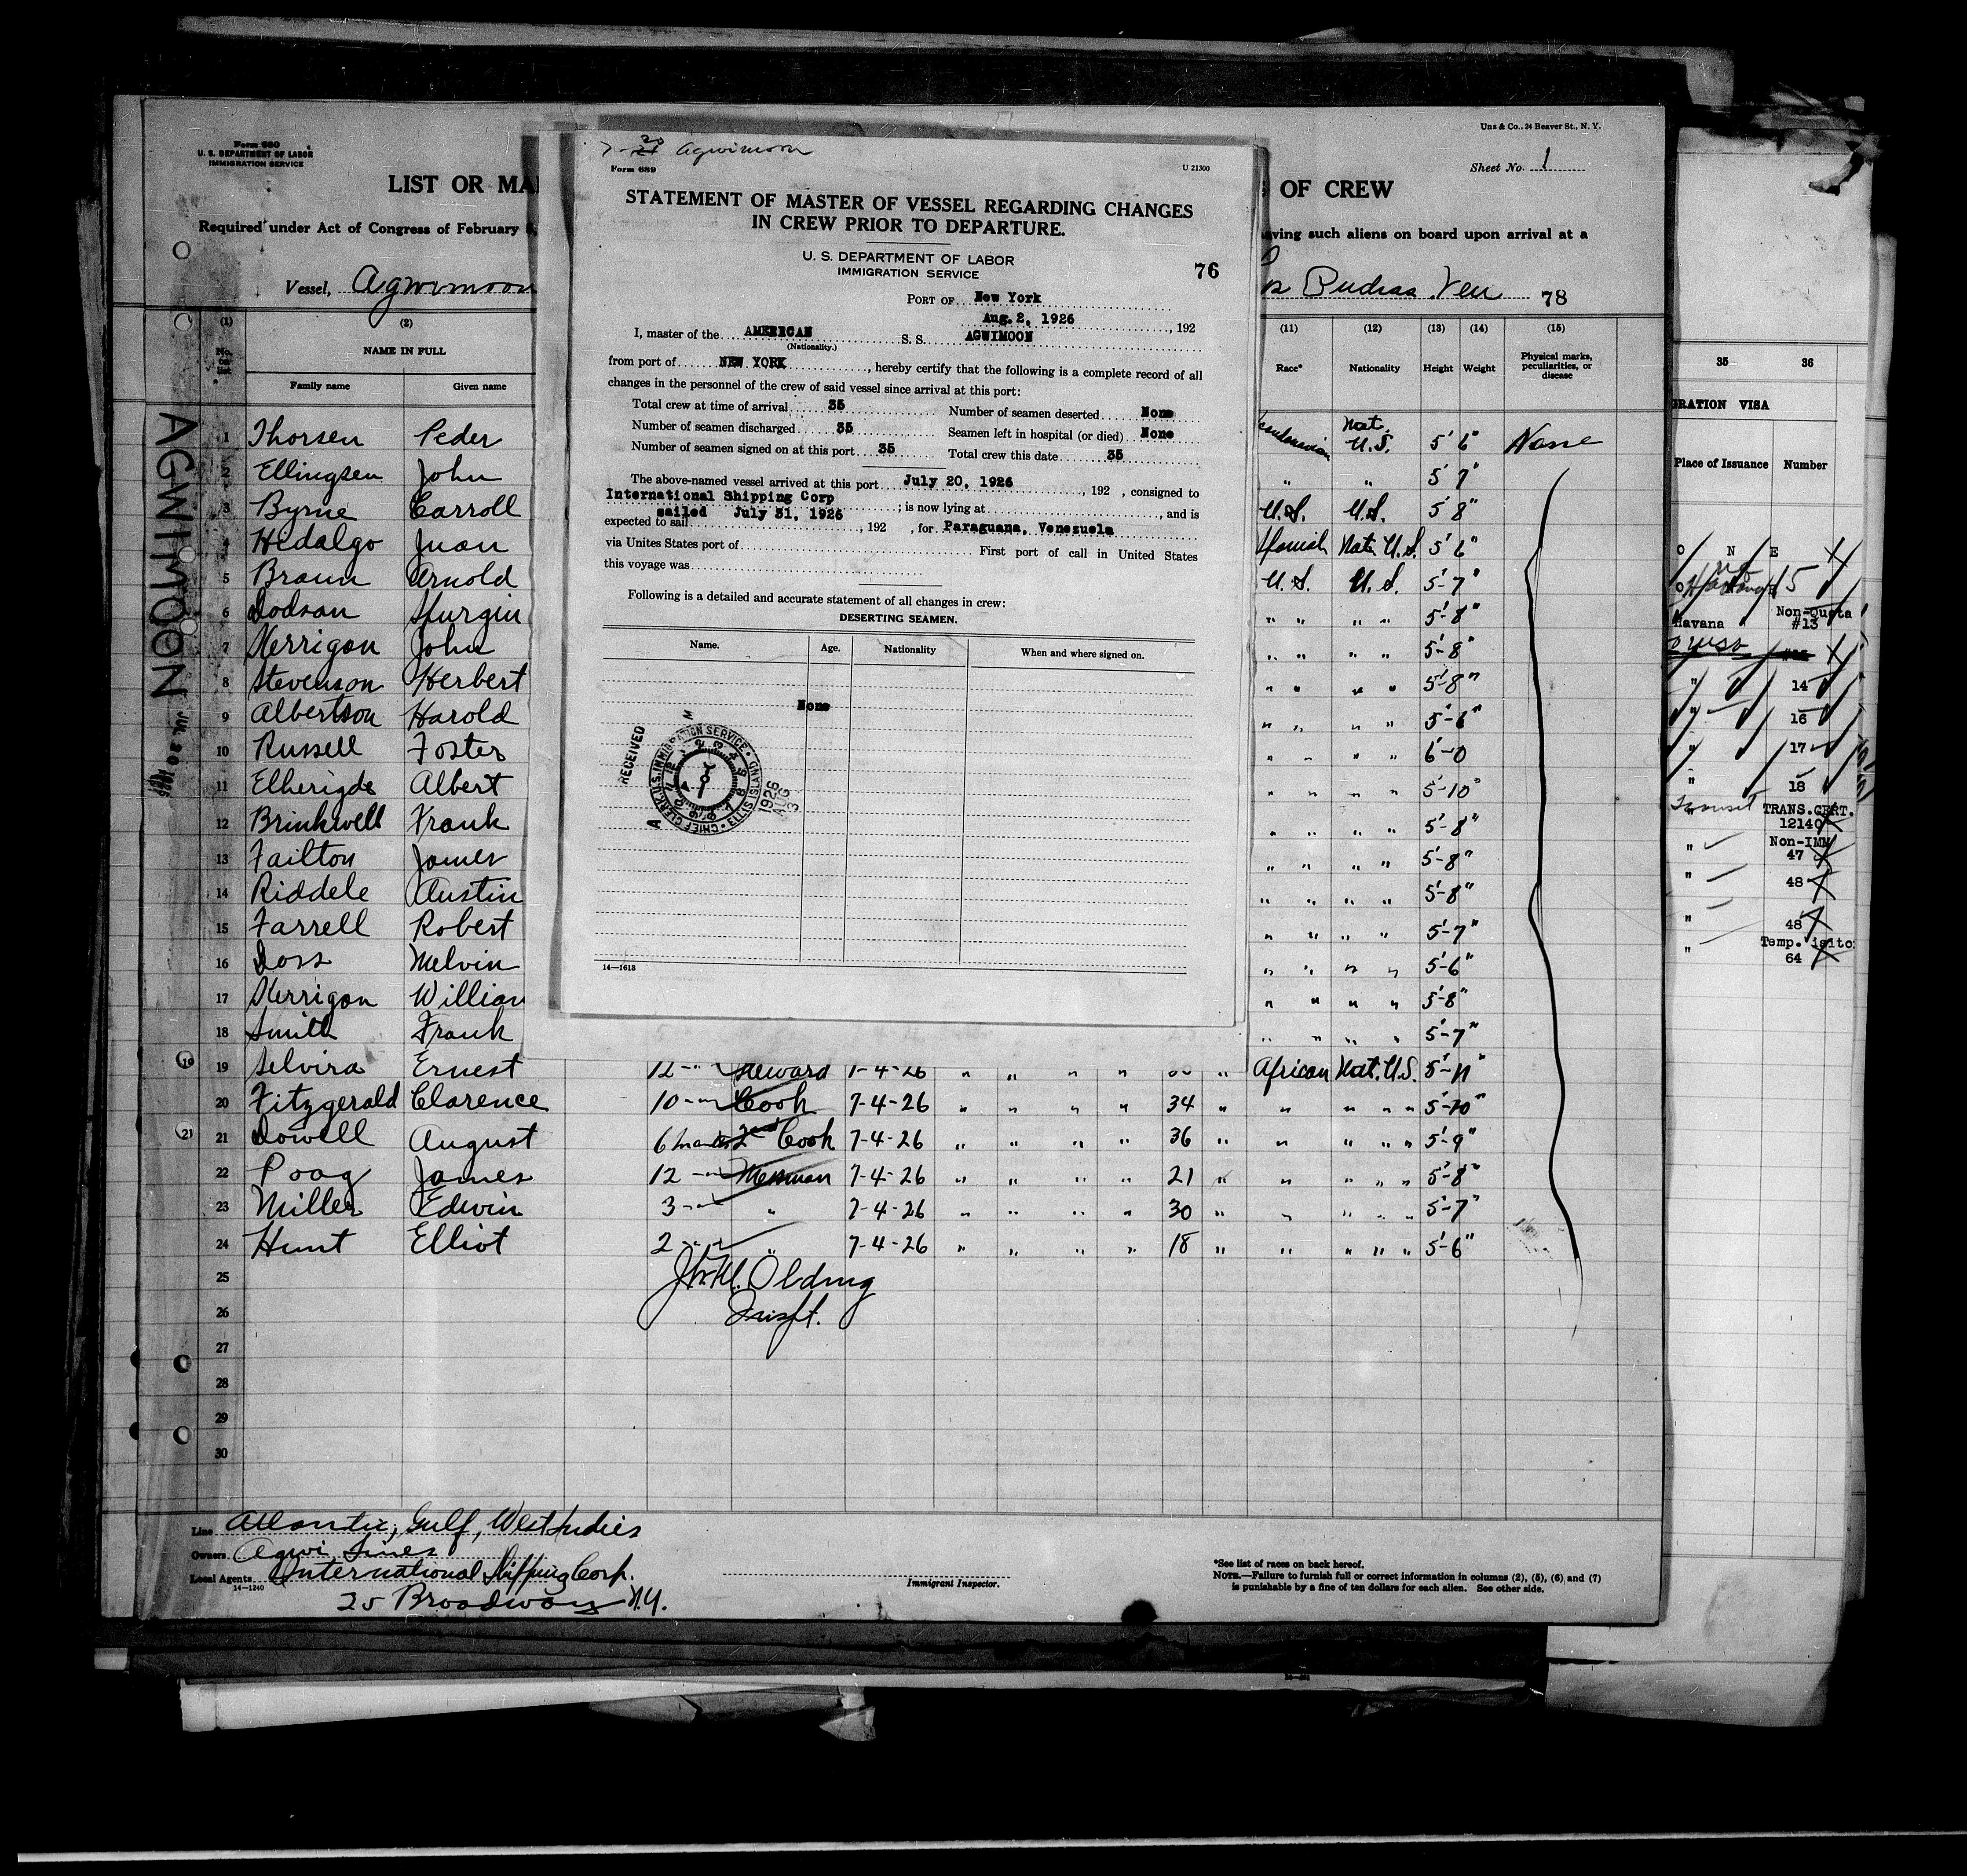 Uns & Co., 24 Beaver St., N. Y.
Form 680
U. S. DEPARTMENT OF LABOR
IMMIGRATION SERVICE
Sheet No. 1
LIST OR MA
OF CREW
Required under Act of Congress of February
aving such aliens on board upon arrival at a
Vessel, Agwimoon
Ven 78
7-20 Agwimoon
Form 689
U 21300
STATEMENT OF MASTER OF VESSEL REGARDING CHANGES
IN CREW PRIOR TO DEPARTURE.
U. S. DEPARTMENT OF LABOR
IMMIGRATION SERVICE
76
PORT OF New York
Aug. 2, 1926, 192
I, master of the AMERICAN S. S. AGWIMOON
(Nationality.)
from port of NEW YORK, hereby certify that the following is a complete record of all
changes in the personnel of the crew of said vessel since arrival at this port:
Total crew at time of arrival 35 Number of seamen deserted None
Number of seamen discharged 35 Seamen left in hospital (or died) None
Number of seamen signed on at this port 35 Total crew this date 35
The above-named vessel arrived at this port July 20, 1926, 192 , consigned to
International Shipping Corp ; is now lying at , and is
sailed July 31, 1926
expected to sail , 192 , for Paraguana, Venezuela
via Unites States port of First port of call in United States
this voyage was
Following is a detailed and accurate statement of all changes in crew:
DESERTING SEAMEN.
Name. Age. Nationality When and where signed on.
None
RECEIVED
CHIEF CLERK U.S. IMMIGRATION SERVICE • ELLIS ISLAND
1926 AUG 3
14—1613
(1) (2) (11) (12) (13) (14) (15)
No. on list
NAME IN FULL
Family name Given name
Race* Nationality Height Weight Physical marks, peculiarities, or disease
AGWIMOON JUL 20 1926
1 Thorsen Peder Nat. U.S. 5'6" None
2 Ellingsen John " " 5'7"
3 Byrne Carroll U.S. U.S. 5'8"
4 Hidalgo Juan Nat. U.S. 5'6"
5 Braun Arnold U.S. U.S. 5-7"
6 Dodson Spurgin " " " " 5'-8"
7 Kerrigan John " " " " 5'-8"
8 Stevenson Herbert " " " " 5'-8"
9 Albertson Harold " " " " 5'-6"
10 Russell Foster " " " " 6'-0
11 Etherigde Albert " " " " 5'-10"
12 Brinkwell Frank " " " " 5'-8"
13 Failton James " " " " 5'-8"
14 Riddele Austin " " " " 5'-8"
15 Farrell Robert " " " " 5'-7"
16 Doss Melvin " " " " 5'-6"
17 Kerrigan William " " " " 5'-8"
18 Smith Frank " " " " 5'-7"
19 19 Selvira Ernest 12 - " Steward 7-4-26 " " " " " African Nat. U.S. 5'-11"
20 Fitzgerald Clarence 10 - " Cook 7-4-26 " " " " 34 " " " " " 5'-10"
21 21 Dowell August 6 months 2nd Cook 7-4-26 " " " " 36 " " " " " 5'-9"
22 Poag James 12 - " Messman 7-4-26 " " " " 21 " " " " " 5'-8"
23 Miller Edwin 3 - " " 7-4-26 " " " " 30 " " " " " 5'-7"
24 Hunt Elliot 2 - " " 7-4-26 " " " " 18 " " " " " 5'-6"
25
26
27
28
29
30
Olding
Line Atlantic, Gulf, West Indies
Owners Agwi Lines
Local Agents International Shipping Corp.
14—1240
25 Broadway N.Y.
Immigrant Inspector.
*See list of races on back hereof.
NOTE.—Failure to furnish full or correct information in columns (2), (5), (6) and (7)
is punishable by a fine of ten dollars for each alien. See other side.
35 36
GRATION VISA
Place of Issuance Number
O N E
5
Non-Quota
Havana #13
" 14
" 16
" 17
" 18
Transit TRANS.CERT.
" 12140
" Non-IMM
47
" 48
" 48
" Temp.
64